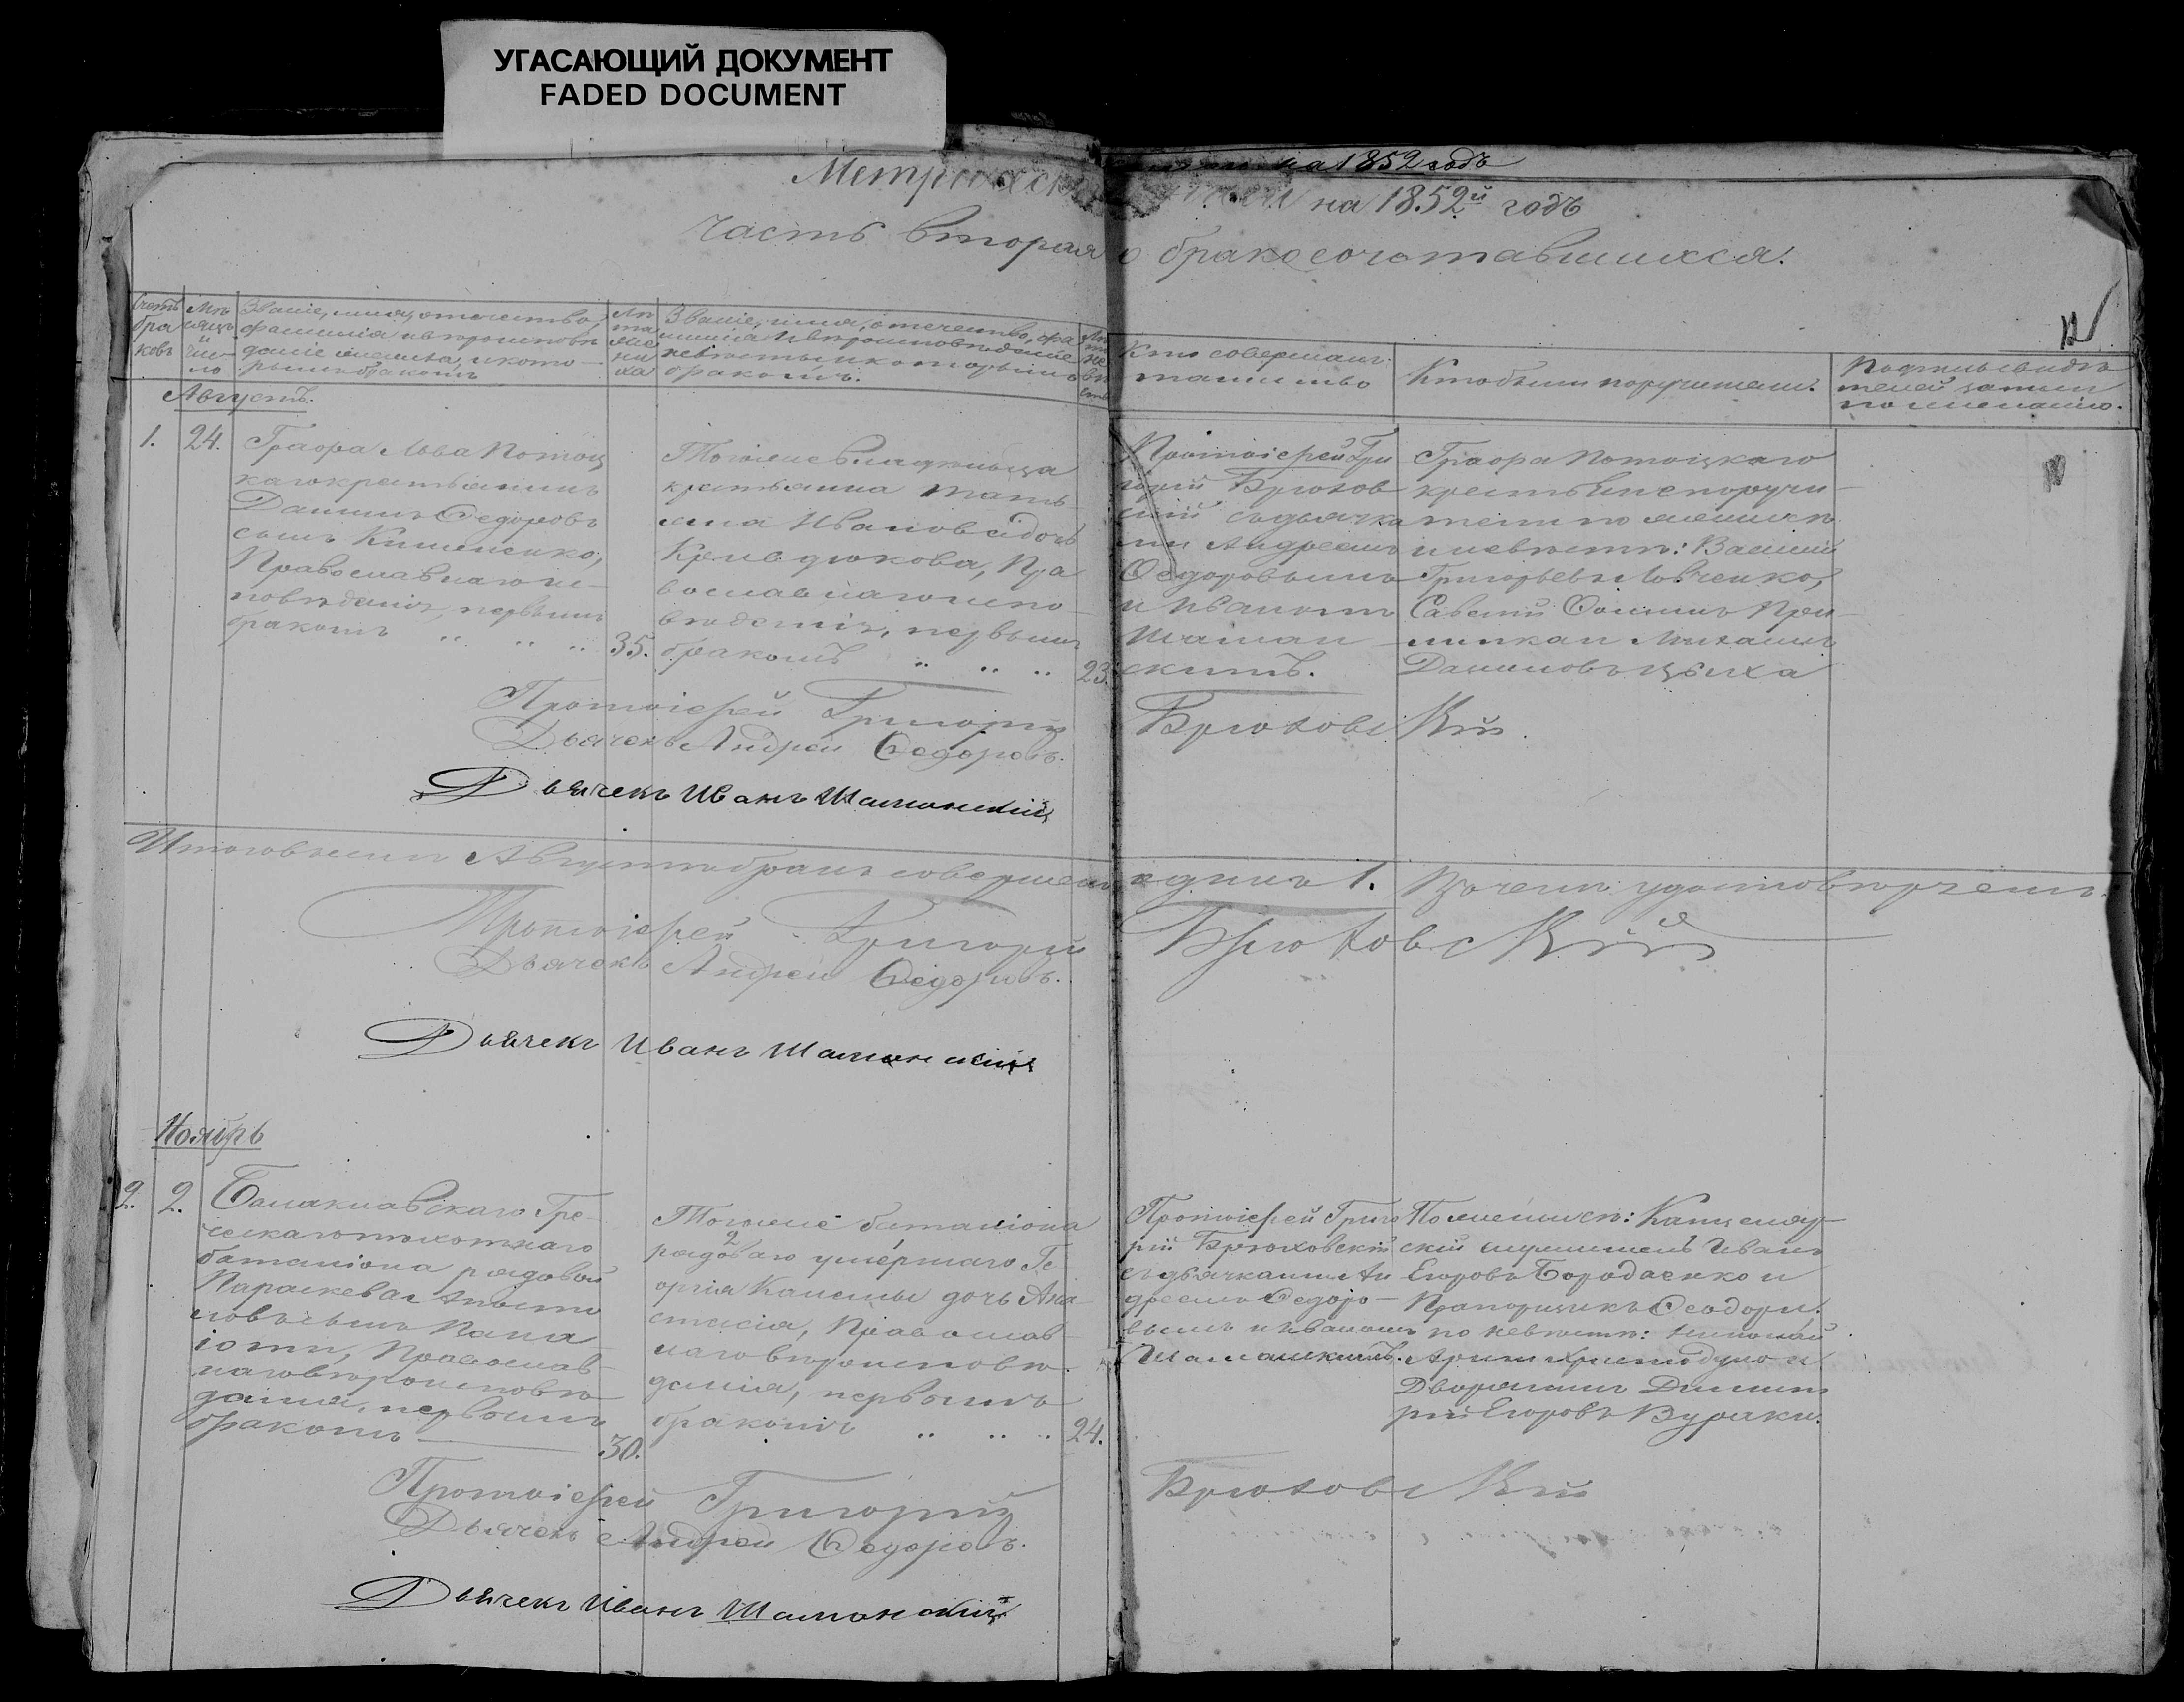 УГАСАЮЩИЙ ДОКУМЕНТ
FADED DOCUMENT
на 1852 годъ
на 1852й годъ
Часть вторая о бракосочетавшихся.
Счетъ браковъ
Мѣсяцъ и число
Званіе, имя, отечество,
фамилія и вѣроисповѣ
даніе жениха, и кото-
рымъ бракомъ
Лѣта жениха
Званіе, имя, отечество, фа
милія и вѣроисповѣданіе
невѣсты и которымъ
бракомъ.
Кто совершалъ
таинство
Кто были поручители.
Августъ.
1.
24.
Графа Льва Потоц
каго крестьянинъ
Даніилъ Ѳедоровъ
сынъ
Православнаго ис-
повѣданія, первымъ
бракомъ
35.
Того же владѣльца
крестьянка Татъ
яна Иванова дочь
Пра
вославнаго испо-
вѣданія, первымъ
бракомъ
23.
Протоіерей Гри
горій Брюхов
скій съ дьячка
ми Андреемъ
Ѳедоровымъ
и Иваномъ
Шаман
скимъ.
Графа Потоцкаго
крестьяне поручи-
тели по женихѣ
и невѣстѣ: Василій
Григорьевъ
Савелій Ѳоминъ При
и Михаилъ
Даниловъ
Протоіерей Григорій Брюховскій.
Дьячекъ Андрей Ѳедоровъ.
Дьячекъ Иванъ Шаманскій
Итого въ семъ Августѣ бракъ совершенъ одинъ 1.
удостовѣряемъ.
Протоіерей Григорій Брюховскій
Дьячекъ Андрей Ѳедоровъ.
Дьячекъ Иванъ Шаманскій
Ноябрь
2.
2.
Балаклавскаго Гре
ческаго пѣхотнаго
баталіона рядовой
Параскева
сынъ Пана
іоти, Православ-
наго вѣроисповѣ
данія, первымъ
бракомъ
30.
Того же баталіона
рядоваго умершаго Ге
оргія дочь Ана
стасія, Православ-
наго вѣроисповѣ-
данія, первымъ
бракомъ
24.
Протоіерей Григо
рій Брюховскій
съ дьячками Ан
дреемъ Ѳедоро-
вымъ и Иваномъ
Шаманскимъ.
По женихѣ: Канцеляр-
скій служитель Иванъ
Егоровъ Бородаенко и
Прапорщикъ Ѳеодори,
по невѣстѣ: Николай
Христодуло и
Дворянинъ Димит
рій Егоровъ
Протоіерей Григорій Брюховскій
Дьячекъ Андрей Ѳедоровъ.
Дьячекъ Иванъ Шаманскій